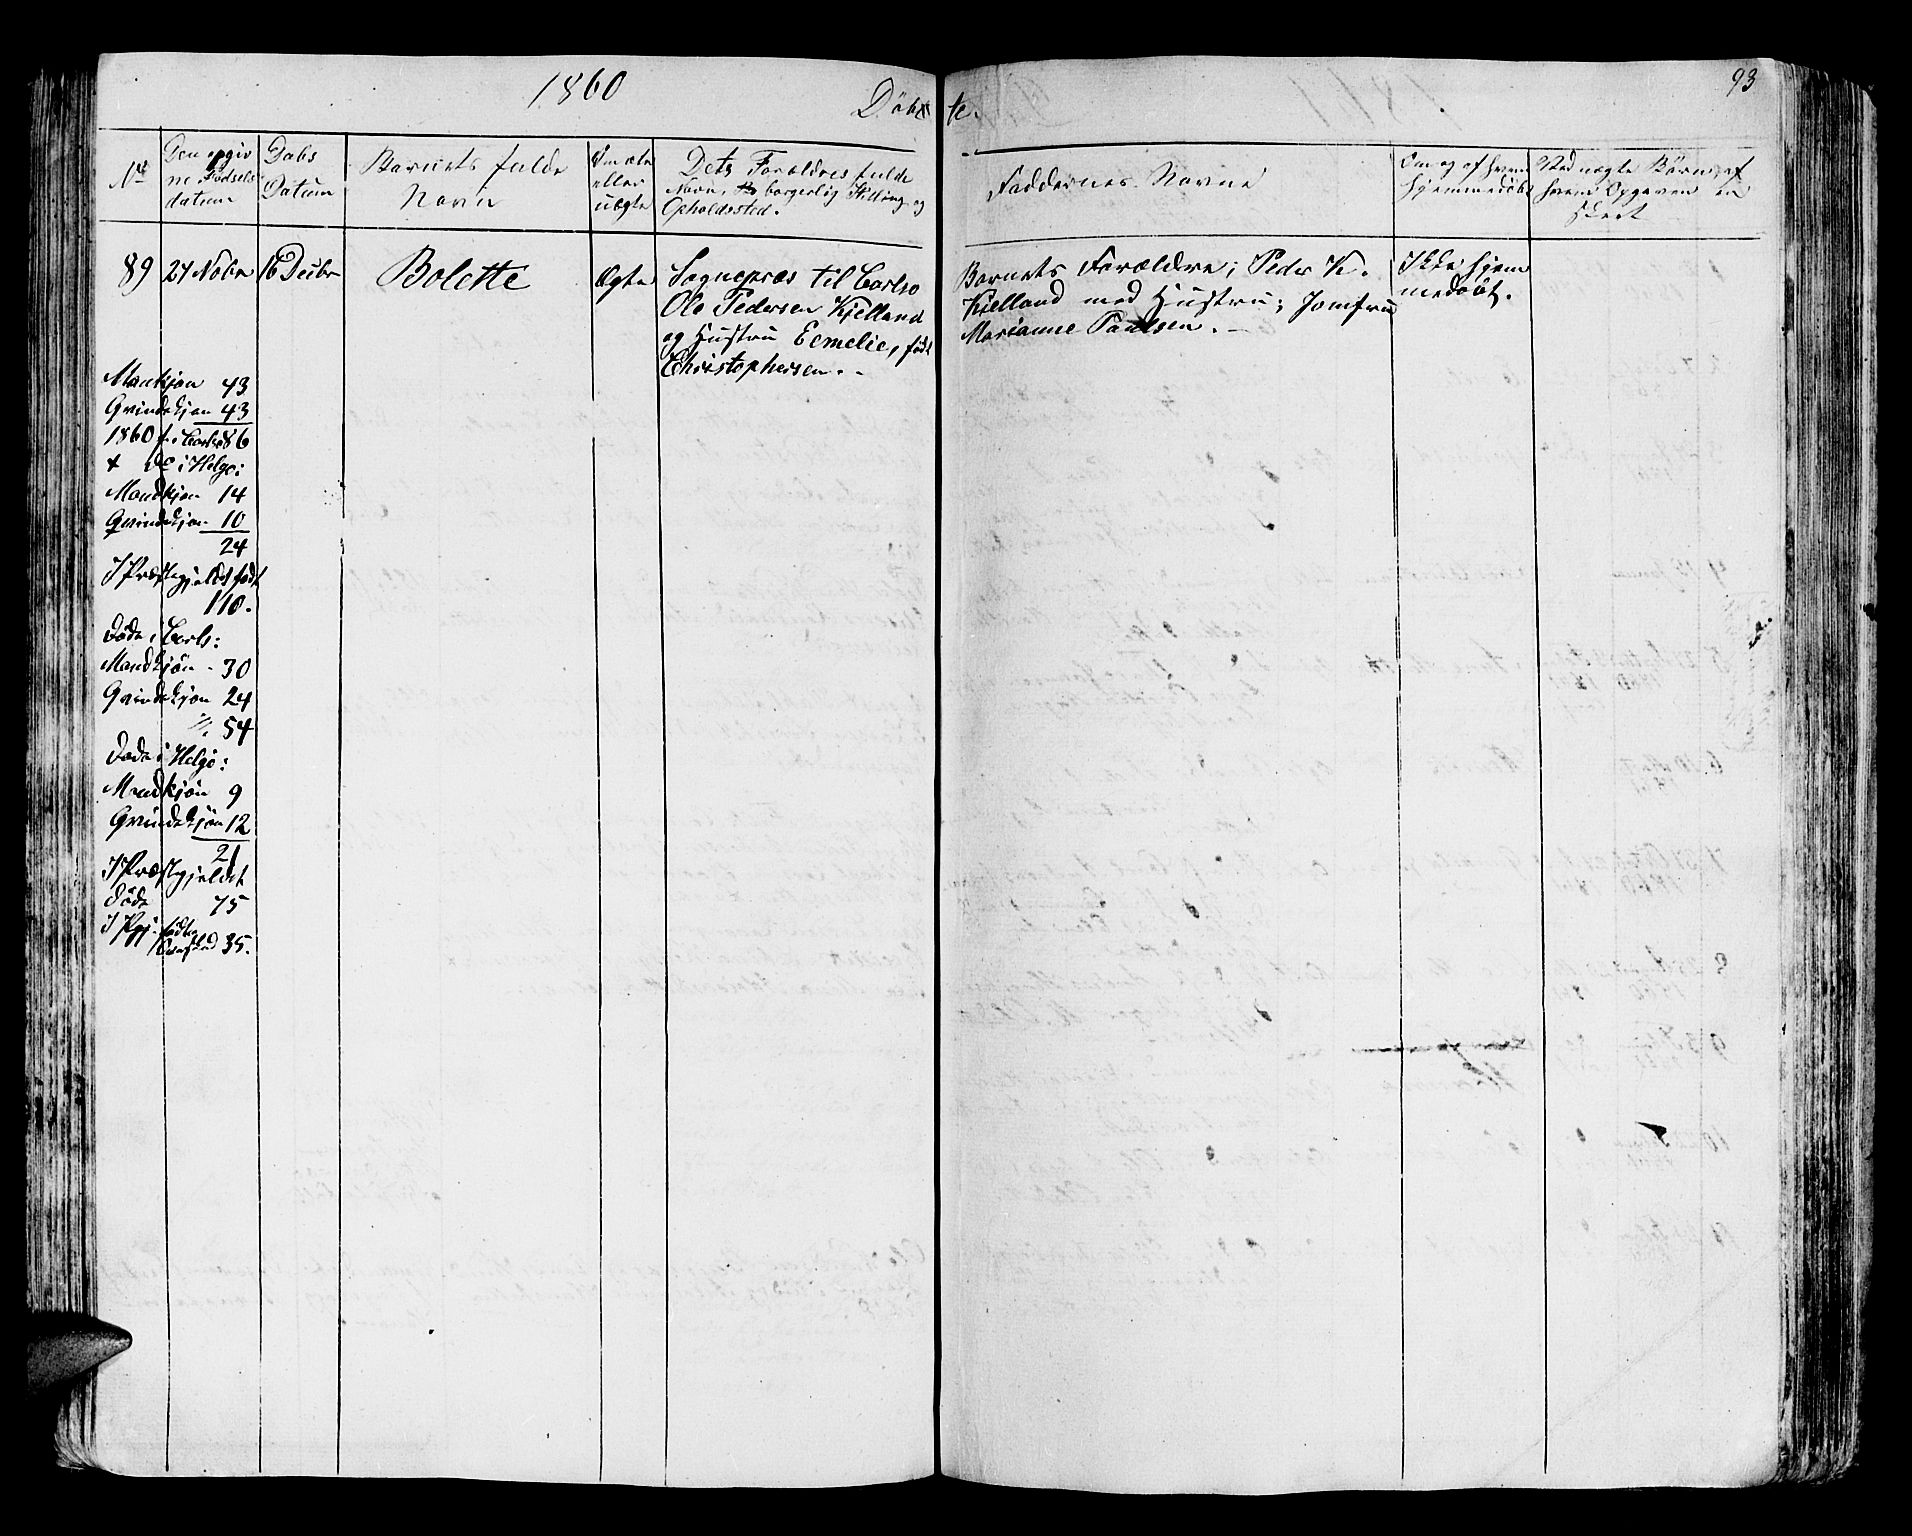 1860
Döbte.
93
No
Den opgiv
ne Födsels
datum
Daabs
Datum
Barnets fulde
Navn
Om ægte
eller
uægte
Dets Forældres fulde
Navn, borgerlig Stilling og
Opholdssted.
Faddernes Navne
Om og af hvem
hjemmedöbt
Ved uægte Börn, af
hvem Opgaven er
skeet
89
24 Novbr
16 Decbr
Bolette
Ægte
Sognepræs til Carlsö
Ole Pedersen Kjelland
og Hustru Eemelie, född
Christophersen. -
Barnets Forældre; Peder K.
Kielland med Hustru; Jomfru
Marianne Paulsen. -
Ikke hjem
medöbt.
Mankjön 43
Qvindekjön 43
1860 f. i Carlsö 86
+ do i Helgö:
Mandkjön 14
Qvindekjön 10
24
I Præstegjeldet född
110.
Döde i Carls:
Mandkjön - 30
Qvindekjön 24
54
Döde i Helgö:
Mandkjön 9
Qvindekjön 12
21
I Præstegjeldet
Döde 75
I Pgj. födte
35.